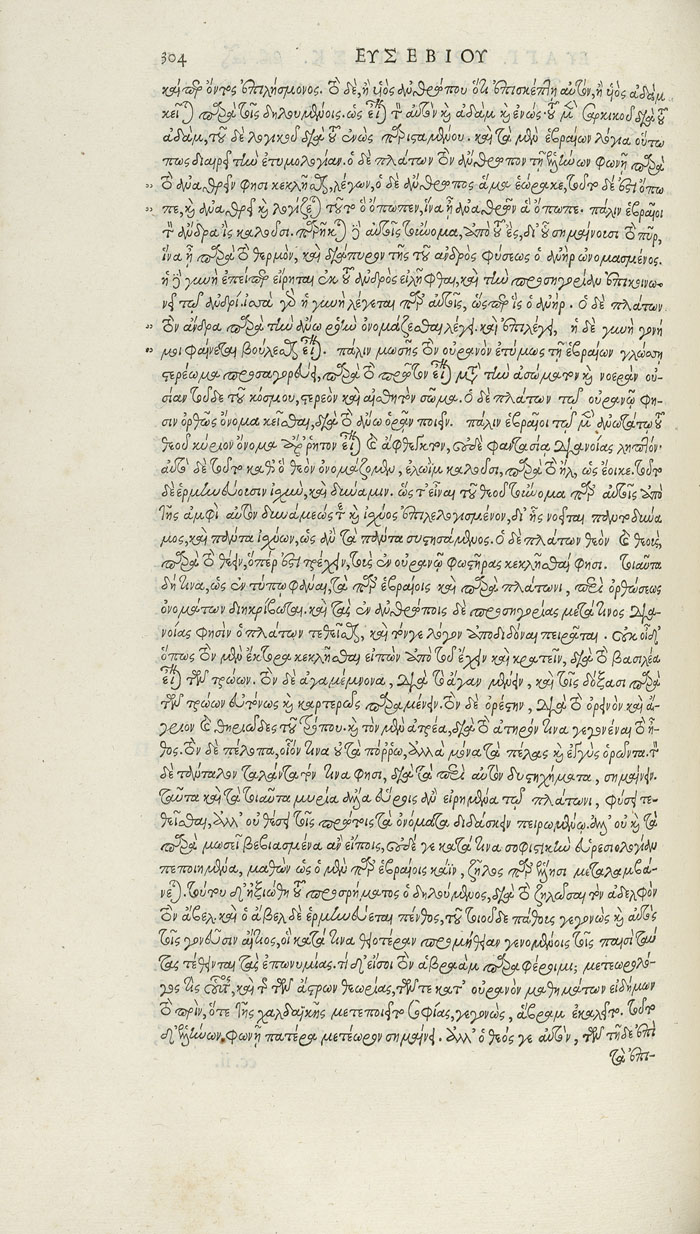 304 ΕΥΣΕΒΙΟΥ
καίπερ ὄντος ἐπιλήσμονος. τὸ δὲ, ἢ υἱὸς ἀνθρώπου ὅτι ἐπισκέπτῃ αὐτὸν, ἢ υἱὸς ἀδὰμ
κεῖται παρὰ τοῖς δηλουμένοις. ὡς εἶναι τὸν αὐτὸν καὶ ἀδὰμ καὶ ἐνώς· τοῦ μὲν σαρκικοῦ διὰ τοῦ
ἀδὰμ, τοῦ δὲ λογικοῦ διὰ τοῦ ἐνὼς παρισταμένου. καὶ τὰ μὲν ἑβραίων λόγια οὕτω
πως διαιρεῖ τὴν ἐτυμολογίαν. ὁ δὲ πλάτων τὸν ἄνθρωπον τῇ ἑλλήνων φωνῇ παρὰ
τὸ ἀναθρεῖν φησὶ κεκλῆσθαι, λέγων, ὁ δὲ ἄνθρωπος ἅμα ἑώρακε, τοῦτο δέ ἐστι ὄπω
πε, καὶ ἀναθρεῖ καὶ λογίζεται τοῦτο ὃ ὄπωπεν, ἵνα ᾖ ἀναθρῶν ἃ ὄπωπε. πάλιν ἑβραῖοι
τὸν ἄνδρα ἲς καλοῦσι. παρῆκται δὲ αὐτοῖς τοὔνομα, ἀπὸ τοῦ ἒς, δι' οὗ σημαίνουσι τὸ πῦρ,
ἵνα ᾖ παρὰ τὸ θερμὸν, καὶ διάπυρον τῆς τοῦ ἀνδρὸς φύσεως ὁ ἀνὴρ ὠνομασμένος.
ἡ δὲ γυνὴ ἐπείπερ εἴρηται ἐκ τοῦ ἀνδρὸς εἰλῆφθαι, καὶ τὴν προσηγορίαν ἐπικοινω-
νεῖ τῷ ἀνδρί. ἰσσὰ γὰρ ἡ γυνὴ λέγεται παρ' αὐτοῖς, ὥσπερ ἲς ὁ ἀνήρ. ὁ δὲ πλάτων
τὸν ἄνδρα παρὰ τὴν ἄνω ῥοὴν ὀνομάζεσθαι λέγει. καὶ ἐπιλέγει, ἡ δὲ γυνὴ γονή
μοι φαίνεται βούλεσθαι εἶναι. πάλιν μωσῆς τὸν οὐρανὸν ἐτύμως τῇ ἑβραίων γλώσσῃ
στερέωμα προσαγορεύει, παρὰ τὸ πρῶτον εἶναι μετὰ τὴν ἀσώματον καὶ νοερὰν οὐ-
σίαν τοῦδε τοῦ κόσμου, στερεὸν καὶ αἰσθητὸν σῶμα. ὁ δὲ πλάτων τῷ οὐρανῷ φη-
σιν ὀρθῶς ὄνομα κεῖσθαι, διὰ τὸ ἄνω ὁρᾶν ποιεῖν. πάλιν ἑβραῖοι τῷ μὲν ἀνωτάτω τοῦ
θεοῦ κύριον ὄνομα ἄρρητον εἶναι καὶ ἄφθεγκτον, οὐδὲ φαντασίᾳ διανοίας ληπτόν·
αὐτὸ δὲ τοῦτο καθ' ὃ θεὸν ὀνομάζομεν, ἐλωὶμ καλοῦσι, παρὰ τὸ ἢλ, ὡς ἔοικε. τοῦτο
δὲ ἑρμηνεύουσιν ἰσχὺν, καὶ δύναμιν. ὥστ' εἶναι τοῦ θεοῦ τοὔνομα παρ' αὐτοῖς ἀπὸ
τῆς ἀμφὶ αὐτὸν δυνάμεώς τε καὶ ἰσχύος ἐπιλελογισμένον, δι' ἧς νοεῖται παντοδύνα
μος, καὶ πάντα ἰσχύων, ὡς ἂν τὰ πάντα συστησάμενος. ὁ δὲ πλάτων θεὸν καὶ θεοὺς,
παρὰ τὸ θέειν, ὅπερ ἐστὶ τρέχειν, τοὺς ἐν οὐρανῷ φωστῆρας κεκλῆσθαί φησι. τοιαῦτα
δή τινα, ὡς ἐν τύπῳ φάναι, τὰ παρ' ἑβραίοις καὶ παρὰ πλάτωνι, περὶ ὀρθώσεως
ὀνομάτων διηκρίβωται. καὶ τὰς ἐν ἀνθρώποις δὲ προσηγορίας μετά τινος δια-
νοίας φησὶν ὁ πλάτων τεθεῖσθαι, καὶ τόνγε λόγον ἀποδιδόναι πειρᾶται. οὐκ οἶδ'
ὅπως τὸν μὲν ἕκτορα κεκλῆσθαι εἰπὼν ἀπὸ τοῦ ἔχειν καὶ κρατεῖν, διὰ τὸ βασιλέα
εἶναι τῶν τρώων. τὸν δὲ ἀγαμέμνονα, διὰ τὸ ἄγαν μένειν, καὶ τοῖς δόξασι παρὰ
τῶν τρώων εὐτόνως καὶ καρτερῶς παραμένειν. τὸν δὲ ὀρέστην, διὰ τὸ ὀρεινὸν καὶ ἄ-
γριον καὶ θηριῶδες τοῦ τρόπου. καὶ τὸν μὲν ἀτρέα, διὰ τὸ ἀτηρόν τινα γεγονέναι τὸ ἦ-
θος. τὸν δὲ πέλοπα, οἷόν τινα οὐ τὰ πόρρω, ἀλλὰ μόνα τὰ πέλας καὶ ἐγγὺς ὁρῶντα. τὸν
δὲ τάνταλον ταλάντατόν τινα φησὶ, διὰ τὰ περὶ αὐτὸν δυστυχήματα, σημαίνειν.
ταῦτα καὶ τὰ τοιαῦτα μυρία ὅσα εὕροις ἂν εἰρημένα τῷ πλάτωνι, φύσει τε-
θεῖσθαι, ἀλλ' οὐ θέσει τοῖς πρώτοις τὰ ὀνόματα διδάσκειν πειρωμένῳ. ἀλλ' οὐ καὶ τὰ
παρὰ μωσεῖ βεβιασμένα ἂν εἴποις, οὐδέ γε κατά τινα σοφιστικὴν εὑρεσιολογίαν
πεποιημένα, μαθὼν ὡς ὁ μὲν παρ' ἑβραίοις κάϊν, ζῆλος παρ' ἕλλησι μεταλαμβά-
νεται. τούτου δ' ἠξιώθη τοῦ προσρήματος ὁ δηλούμενος, διὰ τὸ ζηλῶσαι τὸν ἀδελφὸν
τὸν ἄβελ. καὶ ὁ ἄβελ δὲ ἑρμηνεύεται πένθος, τοῦ τοιοῦδε πάθους γεγονὼς καὶ αὐτὸς
τοῖς γονεῦσιν αἴτιος, οἳ κατά τινα θειοτέραν προμήθειαν γενομένοις τοῖς παισὶ ταύ
τας τέθεινται τὰς ἐπωνυμίας. τί δ' εἴ σοι τὸν ἀβραὰμ παραφέροιμι; μετεωρολό-
γος τις οὗτος, καὶ τῆς τῶν ἄστρων θεωρίας, τῶν τε κατ' οὐρανὸν μαθημάτων εἰδήμων
τὸ πρὶν, ὅτε τῆς χαλδαϊκῆς μετεποιεῖτο σοφίας, γεγονὼς, ἄβραμ ἐκαλεῖτο. τοῦτο
δ' ἑλλήνων φωνῇ πατέρα μετέωρον σημαίνει. ἀλλ' ὁ θεός γε αὐτὸν, τῶν τῇδε ἐπὶ
τὰ ἐπι-